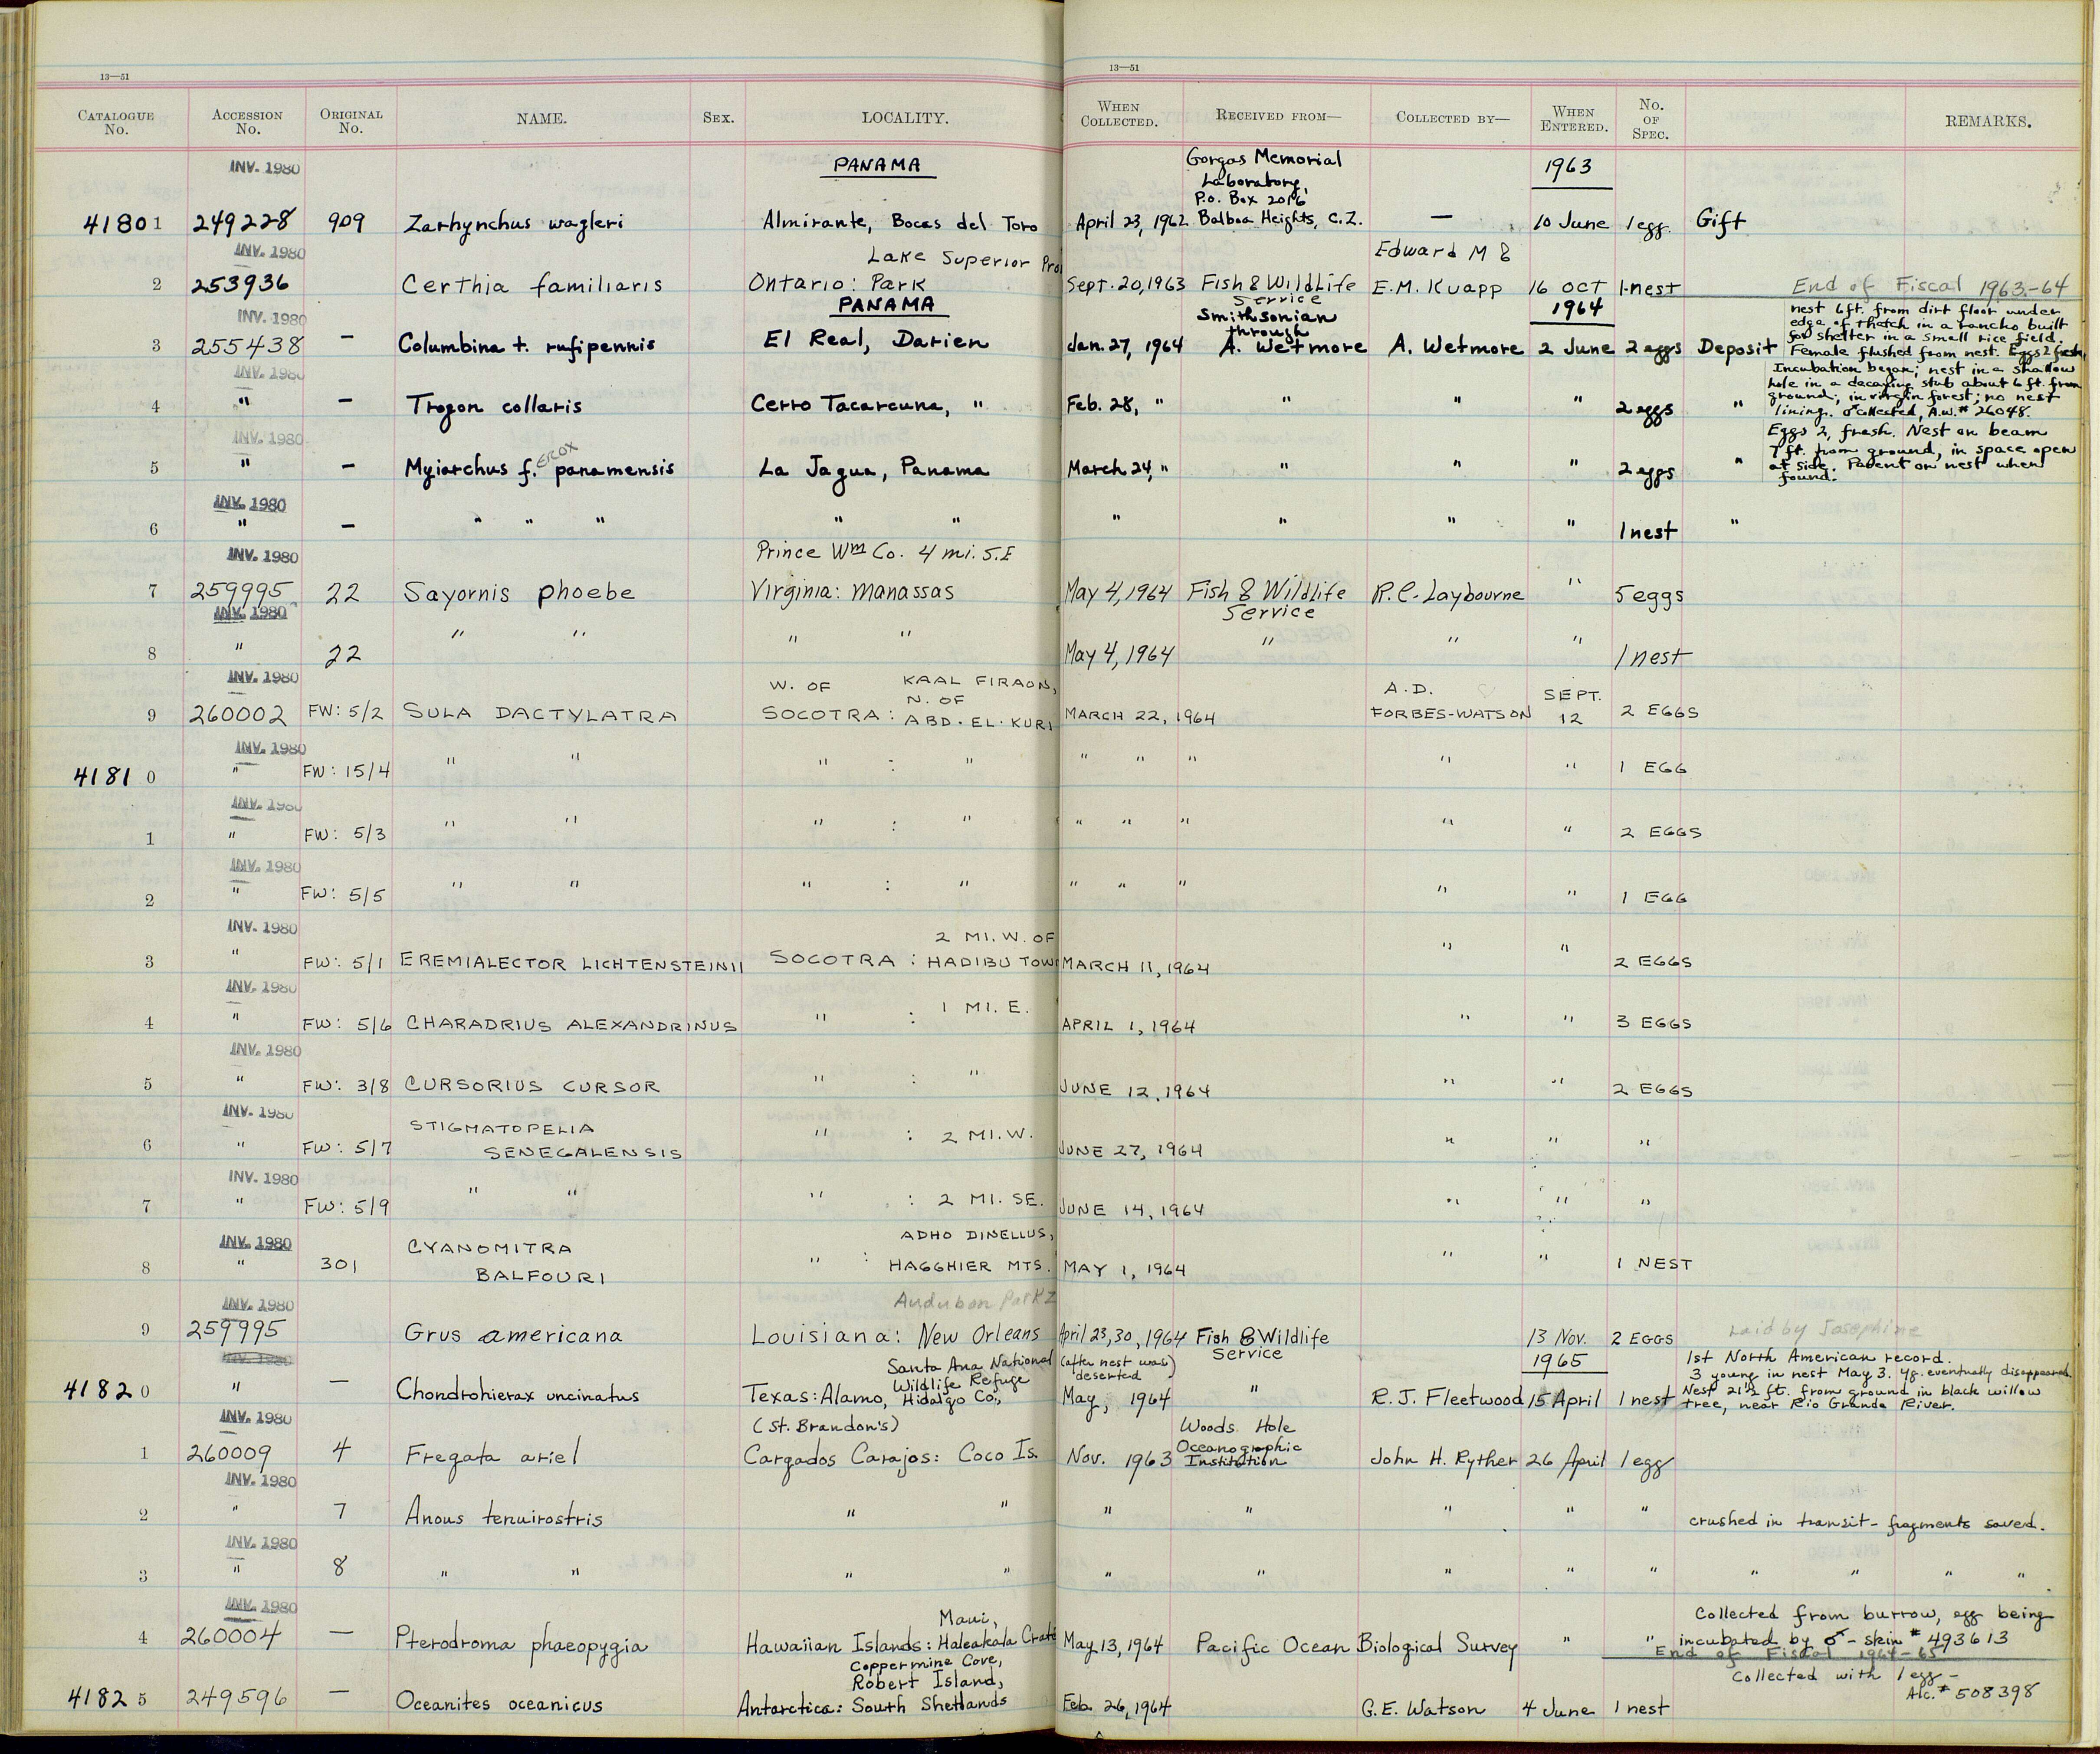 13—51
13—51
CATALOGUE No. ACCESSION No. ORIGINAL No. NAME. SEX. LOCALITY. WHEN COLLECTED. RECEIVED FROM— COLLECTED BY— WHEN ENTERED. No. OF SPEC. REMARKS.
INV. 1980 PANAMA Gorgas Memorial Laboratory, P.O. Box 2016 1963
41801 249228 909 Zarhynchus wagleri Almirante, Bocas del Toro April 23, 1962 Balboa Heights, C.Z. — 10 June 1 egg Gift
INV. 1980 Lake Superior Pro Edward M &
2 253936 Certhia familiaris Ontario: Park Sept. 20, 1963 Fish & Wildlife Service E.M. Kuapp 16 OCT 1 nest End of Fiscal 1963-64
INV. 1980 PANAMA Smithsonian through 1964
3 255438 — Columbina t. rufipennis El Real, Darien Jan. 27, 1964 A. Wetmore A. Wetmore 2 June 2 eggs Deposit nest 6ft. from dirt floor under edge of thatch in a rancho built for shelter in a small rice field. Female flushed from nest. Eggs 2 fresh,
INV. 1980
4 " — Trogon collaris Cerro Tacarcuna, " Feb. 28, " " " " 2 eggs " Incubation began; nest in a shallow hole in a decaying stub about 6 ft. from ground; in virgin forest; no nest lining. ♂ collected, A.W.# 26048.
INV. 1980
5 " — Myiarchus f. EROX panamensis La Jagua, Panama March 24, " " " " 2 eggs " Eggs 2, fresh. Nest on beam 7 ft. from ground, in space open at side. Parent on nest when found.
INV. 1980
6 " — " " " " " " " " " 1 nest "
INV. 1980 Prince Wm Co. 4 mi. S.E
7 259995 22 Sayornis phoebe Virginia: Manassas May 4, 1964 Fish & Wildlife Service R.C. Laybourne " 5 eggs
INV. 1980
8 " 22 " " " " May 4, 1964 " " " 1 nest
INV. 1980 W. OF KAAL FIRAON, N. OF A.D. SEPT.
9 260002 FW: 5/2 SULA DACTYLATRA SOCOTRA: ABD-EL-KURI MARCH 22, 1964 FORBES-WATSON 12 2 EGGS
INV. 1980
41810 " FW: 15/4 " " " : " " " " " " 1 EGG
INV. 1980
1 " FW: 5/3 " " " : " " " " " " 2 EGGS
INV. 1980
2 " FW: 5/5 " " " : " " " " " " 1 EGG
INV. 1980 2 MI. W. OF
3 " FW: 5/1 EREMIALECTOR LICHTENSTEINII SOCOTRA : HADIBU TOW MARCH 11, 1964 " " 2 EGGS
INV. 1980 1 MI. E.
4 " FW: 5/6 CHARADRIUS ALEXANDRINUS " : APRIL 1, 1964 " " 3 EGGS
INV. 1980
5 " FW: 3/8 CURSORIUS CURSOR " : " JUNE 12, 1964 " " 2 EGGS
INV. 1980
6 " FW: 5/7 STIGMATOPELIA SENEGALENSIS " : 2 MI. W. JUNE 27, 1964 " " "
INV. 1980
7 " FW: 5/9 " " " : 2 MI. SE. JUNE 14, 1964 " " "
INV. 1980 ADHO DINELLUS,
8 " 301 CYANOMITRA BALFOURI " : HAGGHIER MTS. MAY 1, 1964 " " 1 NEST
INV. 1980 Audubon Park Z
9 259995 Grus americana Louisiana: New Orleans April 23, 30, 1964 Fish & Wildlife Service 13 Nov. 2 EGGS Laid by Josephine
INV. 1980 Santa Ana National Wildlife Refuge (after nest was deserted) 1965 1st North American record.
41820 " — Chondrohierax uncinatus Texas: Alamo, Hidalgo Co., May, 1964 " R.J. Fleetwood 15 April 1 nest 3 young in nest May 3. yg. eventually disappeared. Nest 21½ ft. from ground in black willow tree, near Rio Grande River.
INV. 1980 (St. Brandon's) Woods Hole
1 260009 4 Fregata ariel Cargados Carajos: Coco Is. Nov. 1963 Oceanographic Institution John H. Ryther 26 April 1 egg
INV. 1980
2 " 7 Anous tenuirostris " " " " " " " crushed in transit - fragments saved.
INV. 1980
3 " 8 " " " " " " " " " " " " "
INV. 1980 Maui,
4 260004 — Pterodroma phaeopygia Hawaiian Islands: Haleakala Crate May 13, 1964 Pacific Ocean Biological Survey " " Collected from burrow, egg being incubated by ♂ - skin # 493613
End of Fiscal 1964-65
Coppermine Cove, Robert Island, Collected with 1 egg -
41825 249596 — Oceanites oceanicus Antarctica: South Shetlands Feb. 26, 1964 G.E. Watson 4 June 1 nest Alc.# 508398